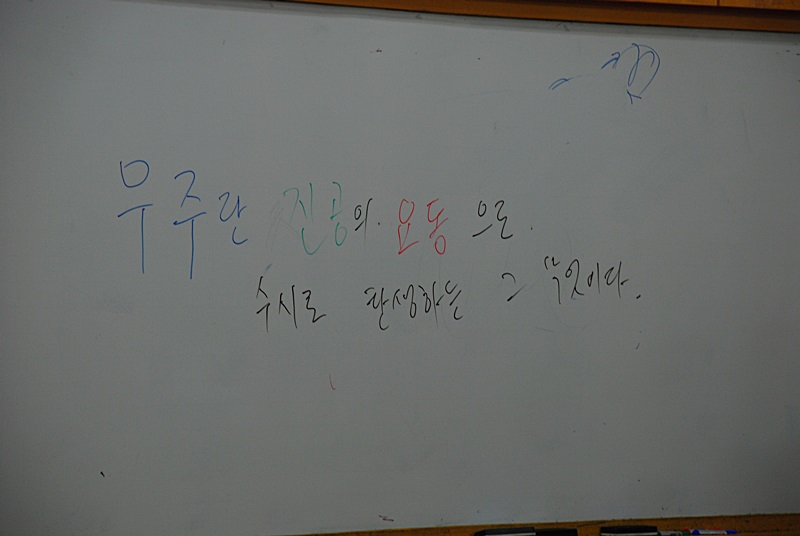 우주란 진공의 요동으로
수시로 탄생하는 그 무엇이다.